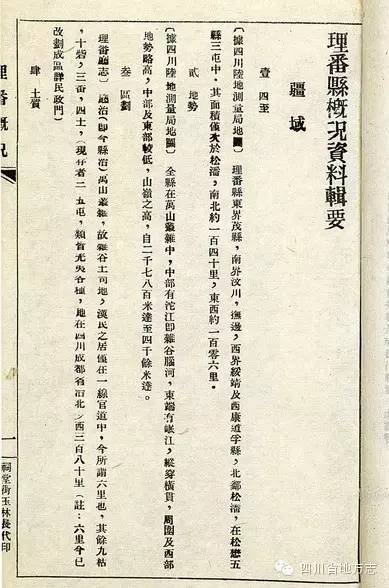 理番縣概況資料輯要
疆域
壹 四至
〔據四川陸地測量局地圖〕 理番縣東界茂縣,南界汶川,懋邊,西界綏靖及西康道孚縣,北鄰松潘,在松懋五
縣三屯中,其面積僅次於松潘,南北約一百四十里,東西約一百零六里。
貳 地勢
〔據四川陸地測量局地圖〕 全縣在萬山叢雜中,中部有沱江即雜谷腦河,東端有岷江,縱穿橫貫,周圍及西部
地勢較高,中部及東部較低,山嶺之高,自二千七八百米達至四千餘米達。
叁 區劃
理番廳志〕 廳治(即今縣治)萬山叢雜,故雜谷土司地,漢民之居僅在一線官道中,今所謂六里也,其餘九枯
,十砦,三番,四土,(現存者二 五屯,類皆羌夷各種,地在四川成都省治北,西三百八十里(註:六里今已
改劃成區詳民政門)
肆 土質
理番概況
一
祠堂街玉林長代印
四川省地方志